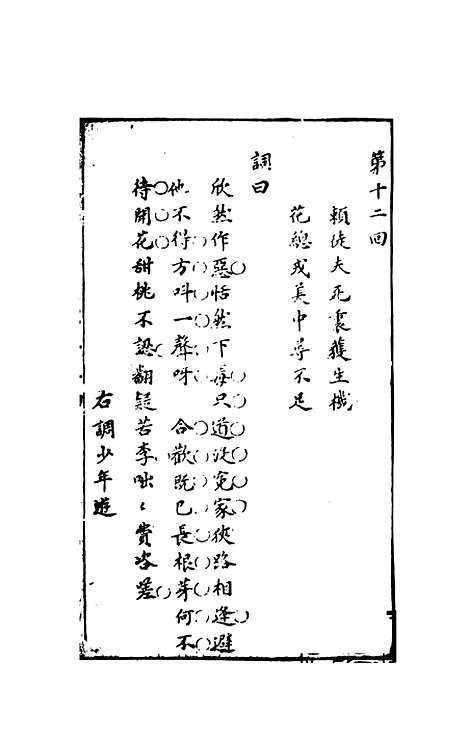 第十二回
賴夫死裏獲生機
花總戎美中尋不足
詞曰
欣然作惡恬然下毒只道没冤家狹路相逢避
他不得方叫一聲呀 合歡既已長根芽何不
待開花甜桃不認翻疑苦李咄〻費咨嗟
右調少年遊